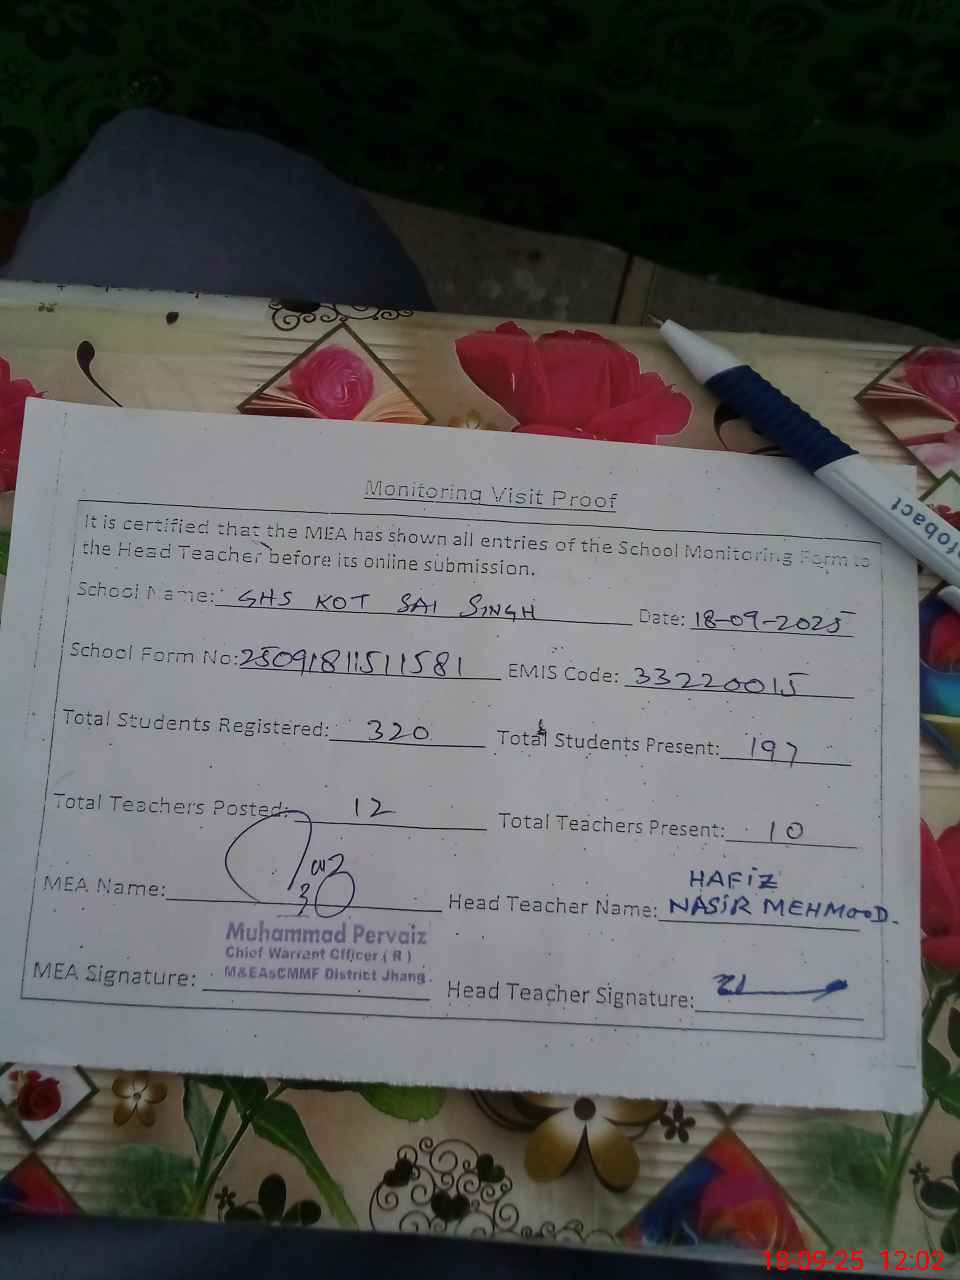 Monitoring Visit Proof
It is certified that the MEA has shown all entries of the School Monitoring Form to
the Head Teacher before its online submission.
School Name: GHS KOT SAI SINGH Date: 18-09-2025
School Form No: 25091811511581 EMIS Code: 33220015
Total Students Registered: 320 Total Students Present: 197
Total Teachers Posted: 12 Total Teachers Present: 10
MEA Name: Head Teacher Name: HAFIZ NASIR MEHMOOD.
Muhammad Pervaiz
Chief Warrant Officer ( R )
M&EAsCMMF District Jhang.
MEA Signature: Head Teacher Signature:
18-09-25 12:02